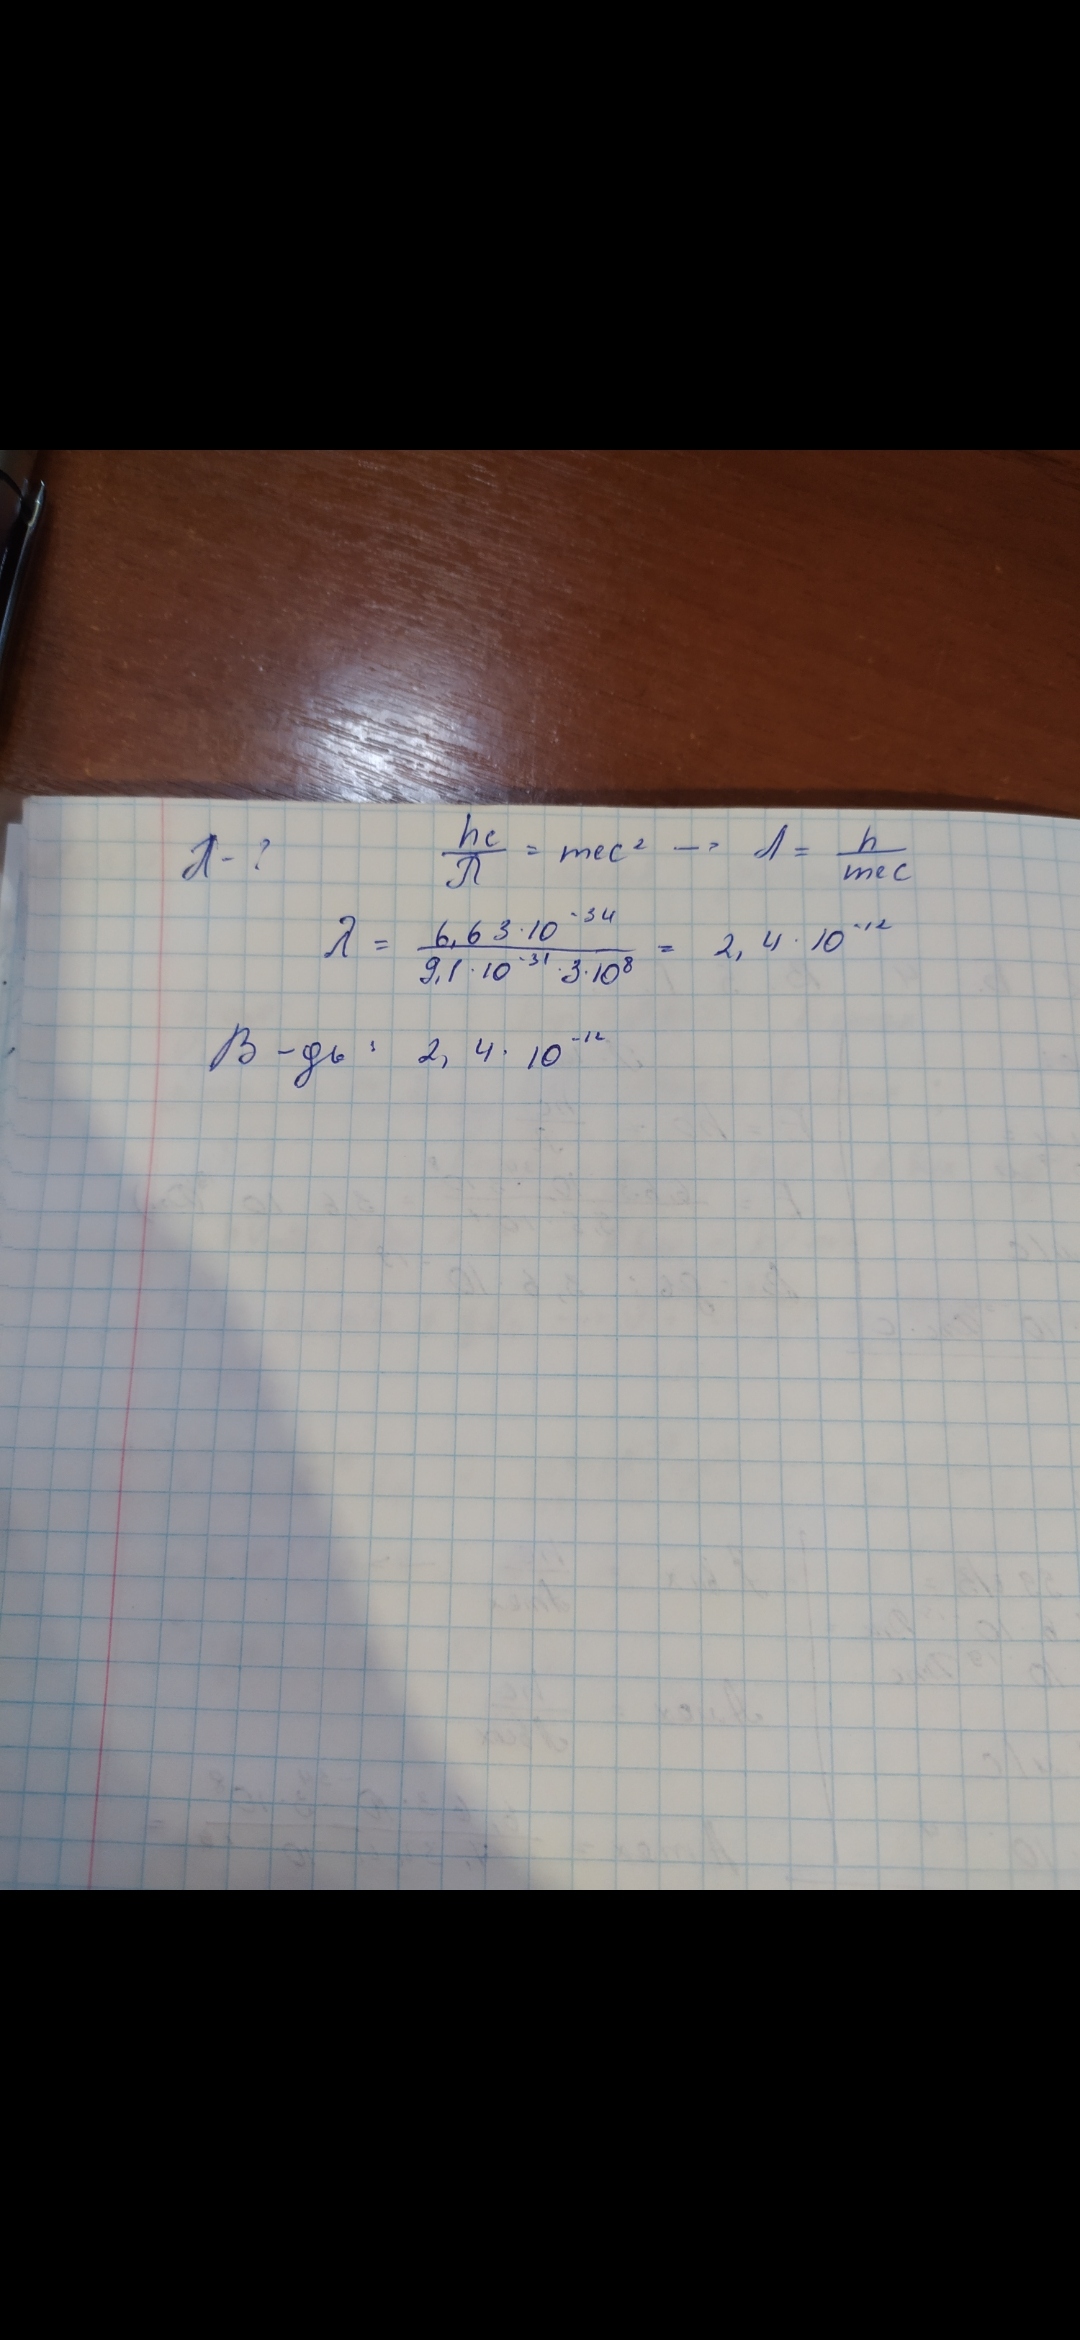 λ - ?
hc/λ = mec² → λ = h/mec
λ = 6,63·10⁻³⁴/9,1·10⁻³¹·3·10⁸ = 2,4·10⁻¹²
В-дь: 2,4·10⁻¹²